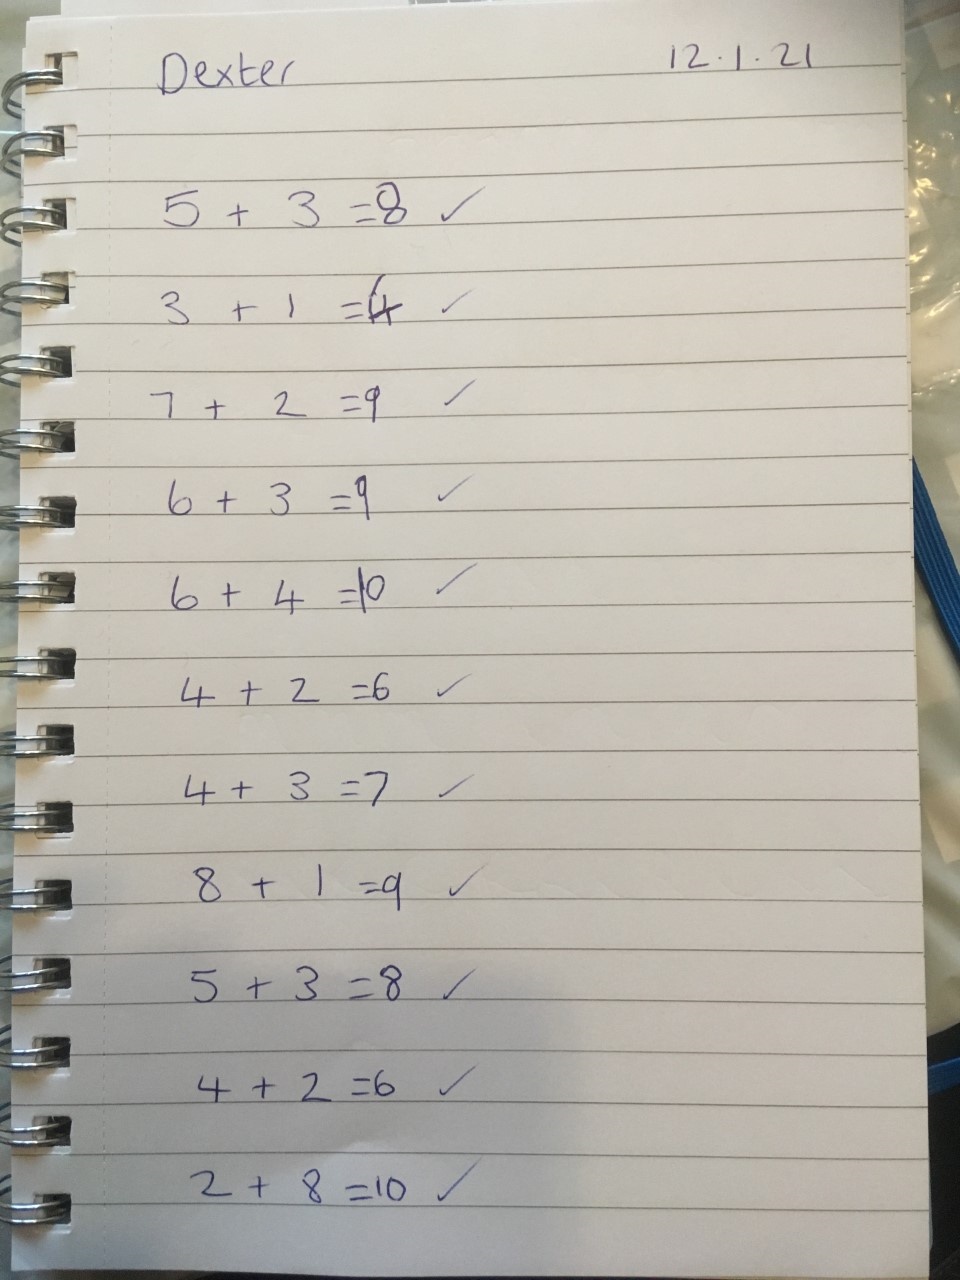 Dexter 12.1.21
5 + 3 =8 ✓
3 + 1 =4 ✓
7 + 2 =9 ✓
6 + 3 =9 ✓
6 + 4 =10 ✓
4 + 2 =6 ✓
4 + 3 =7 ✓
8 + 1 =9 ✓
5 + 3 =8 ✓
4 + 2 =6 ✓
2 + 8 =10 ✓